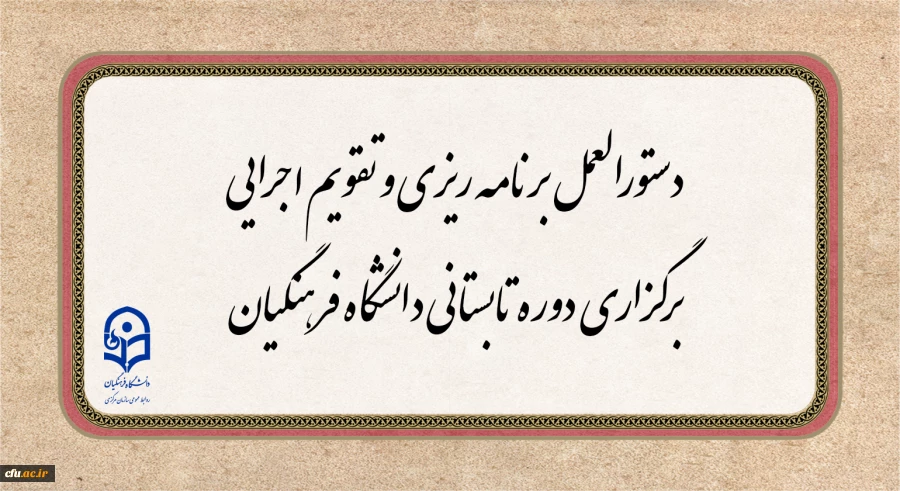 دستورالعمل برنامه ریزی و تقویم اجرایی
برگزاری دوره تابستانی دانشگاه فرهنگیان
دانشگاه فرهنگیان
روابط عمومی سازمان مرکزی
cfu.ac.ir